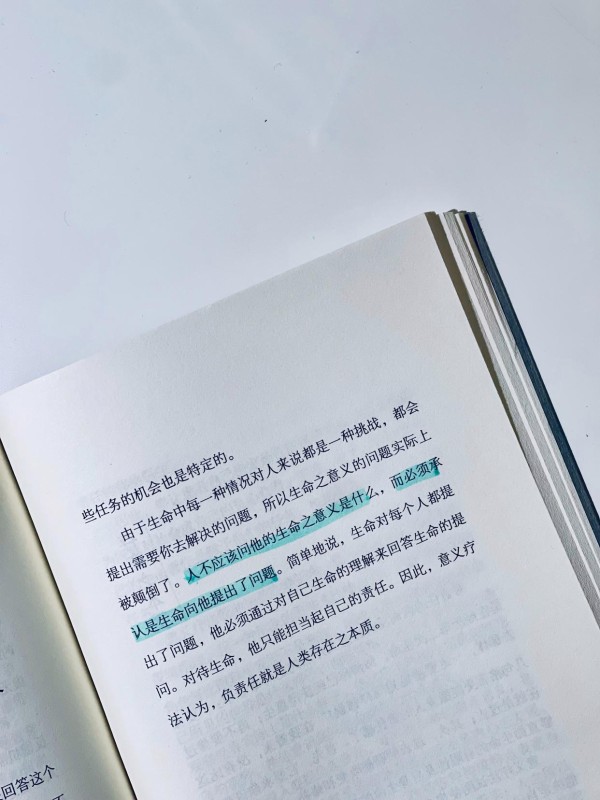 些任务的机会也是特定的。
由于生命中每一种情况对人来说都是一种挑战，都会
提出需要你去解决的问题，所以生命之意义的问题实际上
被颠倒了。人不应该问他的生命之意义是什么，而必须承
认是生命问他提出了问题。简单地说，生命对每个人都提
出了问题，他必须通过对自己生命的理解来回答生命的提
问。对待生命，他只能担当起自己的责任。因此，意义疗
法认为，负责任就是人类存在之本质。
回答这个